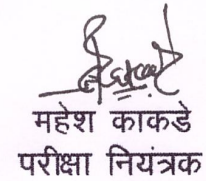 महेश काकडे
परीक्षा नियंत्रक